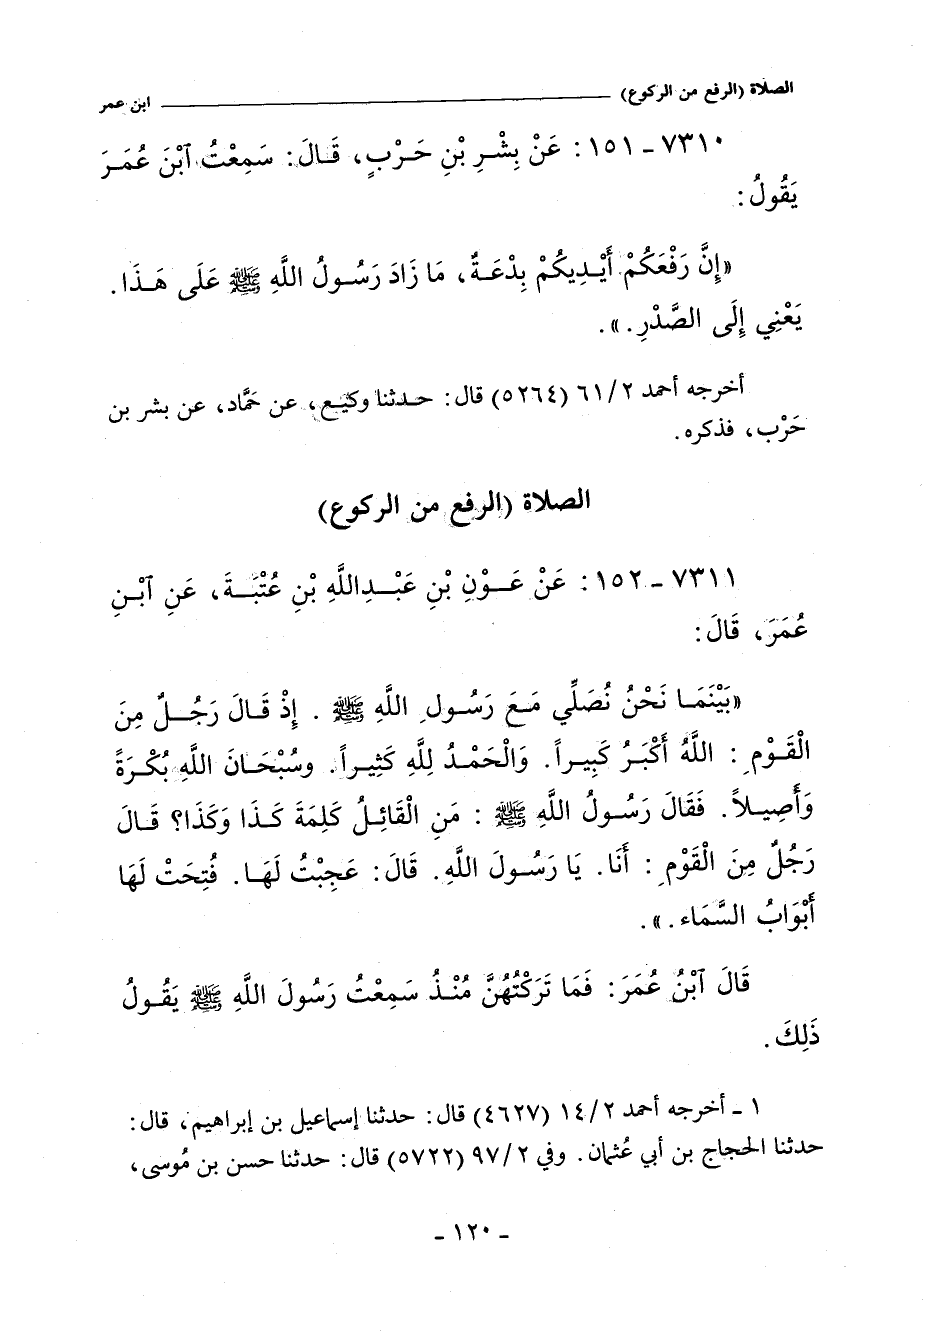 الصلاة (الرفع من الركوع) ـــــــــ ابن عمر
٧٣١٠ ـ ١٥١ : عَنْ بِشْرِ بْنِ حَرْبٍ، قَالَ: سَمِعْتُ ٱبْنَ عُمَرَ
يَقُولُ:
«إِنَّ رَفْعَكُمْ أَيْدِيكُمْ بِدْعَةٌ، مَا زَادَ رَسُولُ اللَّهِ ﷺ عَلَى هَذَا.
يَعْنِي إِلَى الصَّدْرِ.».
أخرجه أحمد ٦١/٢ (٥٢٦٤) قال: حدثنا وكيع، عن حمَّاد، عن بشر بن
حَرْب، فذكره.
الصلاة (الرفع من الركوع)
٧٣١١ ـ ١٥٢ : عَنْ عَوْنِ بْنِ عَبْدِاللَّهِ بْنِ عُتْبَةَ، عَنِ ٱبْنِ
عُمَرَ، قَالَ:
«بَيْنَمَا نَحْنُ نُصَلِّي مَعَ رَسُولِ اللَّهِ ﷺ . إِذْ قَالَ رَجُلٌ مِنَ
الْقَوْمِ: اللَّهُ أَكْبَرُ كَبِيراً. وَالْحَمْدُ لِلَّهِ كَثِيراً. وسُبْحَانَ اللَّهِ بُكْرَةً
وَأَصِيلاً. فَقَالَ رَسُولُ اللَّهِ ﷺ : مَنِ الْقَائِلُ كَلِمَةَ كَذَا وَكَذَا؟ قَالَ
رَجُلٌ مِنَ الْقَوْمِ: أَنَا. يَا رَسُولَ اللَّهِ. قَالَ: عَجِبْتُ لَهَا. فُتِحَتْ لَهَا
أَبْوَابُ السَّمَاء.».
قَالَ ٱبْنُ عُمَرَ: فَمَا تَرَكْتُهُنَّ مُنْذُ سَمِعْتُ رَسُولَ اللَّهِ ﷺ يَقُولُ
ذَلِكَ.
١ ـ أخرجه أحمد ١٤/٢ (٤٦٢٧) قال: حدثنا إسماعيل بن إبراهيم، قال:
حدثنا الحجاج بن أبي عُثمان. وفي ٩٧/٢ (٥٧٢٢) قال: حدثنا حسن بن مُوسى،
ـ ١٢٠ ـ